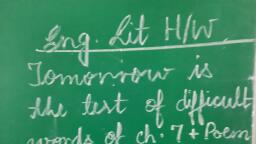 Eng. Lit H/W
Tomorrow is
the test of difficult
words of ch. 7 + Poem